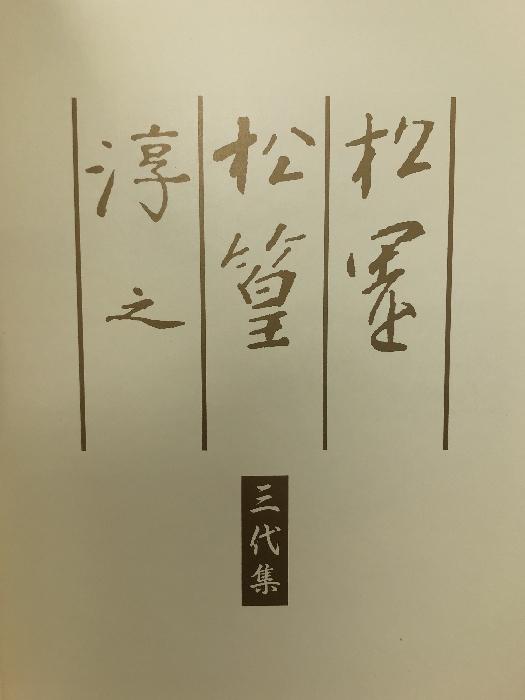 松園
松篁
淳之
三代集